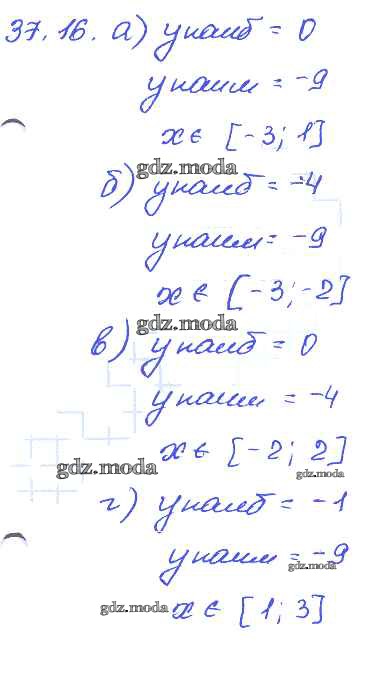 37.16. а) yнаиб = 0
yнаим = -9
x ∈ [-3; 1]
gdz.moda
б) yнаиб = -4
yнаим = -9
x ∈ [-3; -2]
gdz.moda
в) yнаиб = 0
yнаим = -4
x ∈ [-2; 2]
gdz.moda
gdz.moda
г) yнаиб = -1
yнаим = -9
gdz.moda
gdz.moda
x ∈ [1; 3]